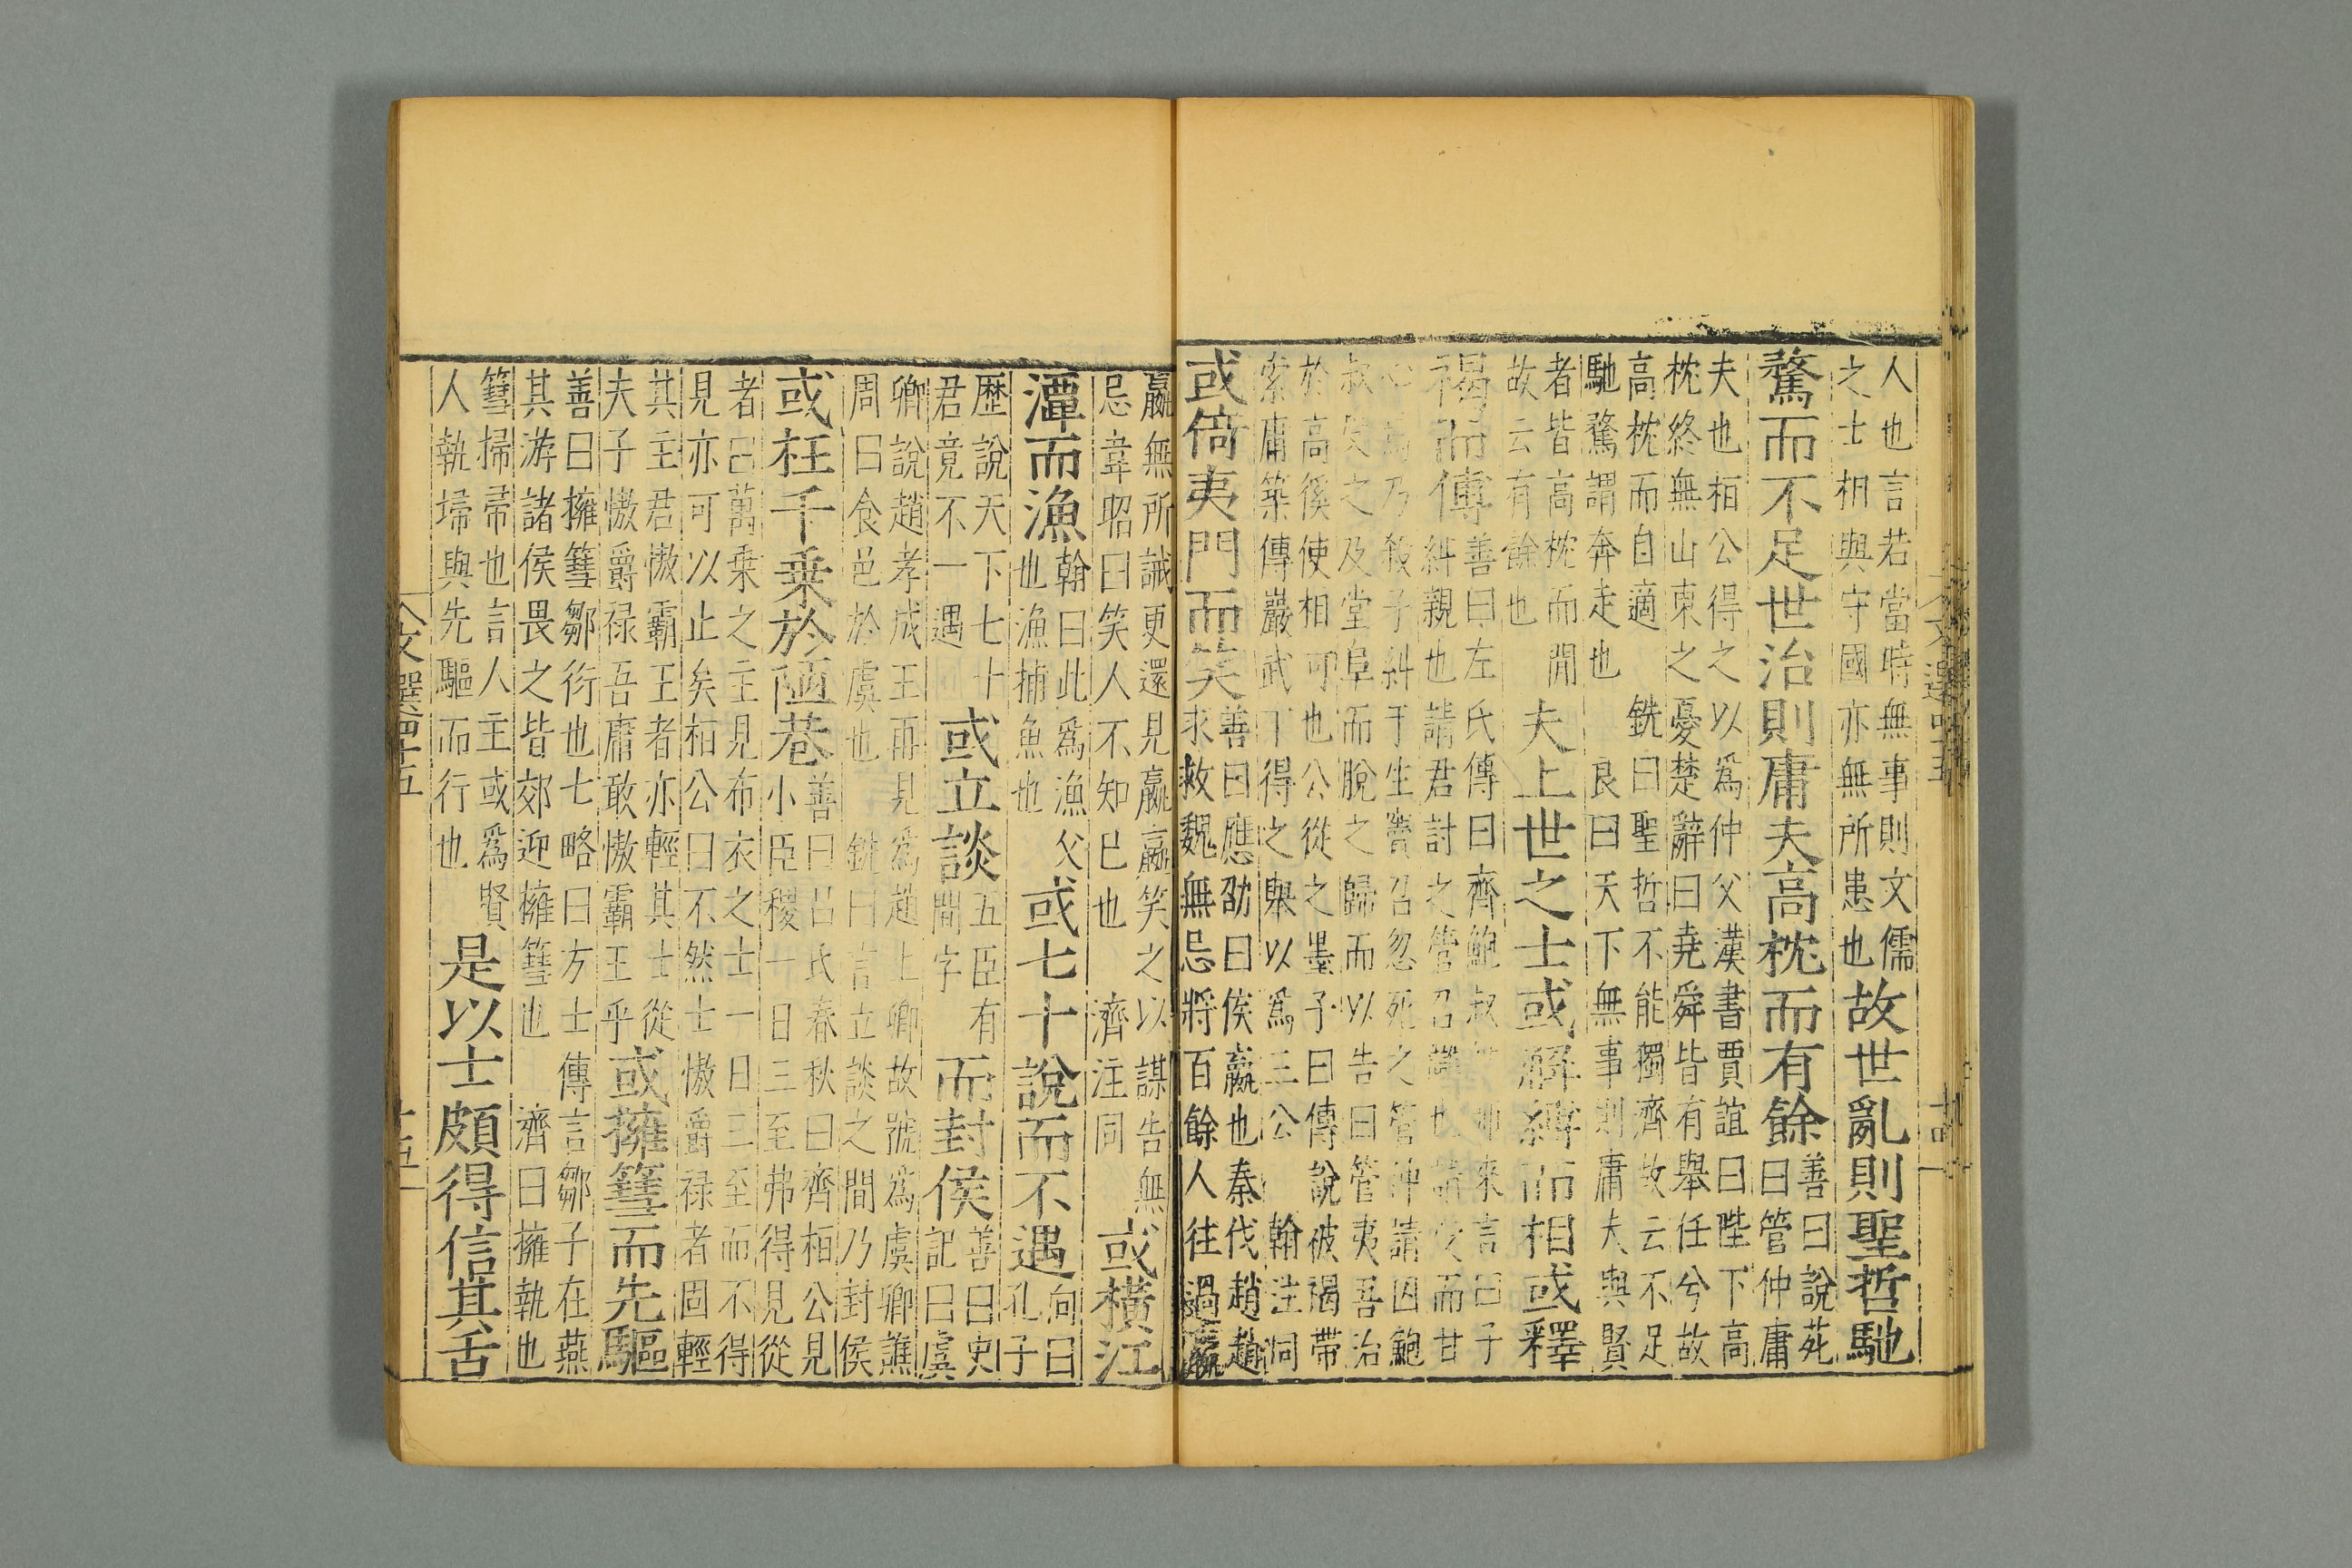 人也言若當時無事則文儒
之士相與守國亦無所患也
故世亂則聖哲馳
騖而不足世治則庸夫高枕而有餘
善曰說苑
曰管仲庸
夫也桓公得之以爲仲父漢書賈誼曰陛下高
枕終無山東之憂楚辭曰堯舜皆有舉任兮故
高枕而自適 銑曰聖哲不能獨濟故云不足
馳騖謂奔走也 良曰天下無事則庸夫與賢
者皆高枕而閒
故云有餘也
夫上世之士或解縛而相或釋
褐而傅
善曰左氏傳曰齊鮑叔帥師來言曰子
糾親也請君討之管召讎也請受而甘
心焉乃殺子糾于生竇召忽死之管仲請囚鮑
叔受之及堂阜而脫之歸而以告曰管夷吾治
於高傒使相可也公從之墨子曰傳說被褐帶
索庸築傅巖武丁得之舉以爲三公 翰注同
或倚夷門而笑
善曰應劭曰侯嬴也秦伐趙趙
求救魏無忌將百餘人往過嬴
嬴無所誡更還見嬴嬴笑之以謀告無
忌韋昭曰笑人不知己也 濟注同
或橫江
潭而漁
翰曰此爲漁父
也漁捕魚也
或七十說而不遇
向曰
孔子
歷說天下七十
君竟不一遇
或立談
五臣有
間字
而封侯
善曰史
記曰虞
卿說趙孝成王再見爲趙上卿故號爲虞卿譙
周曰食邑於虞也 銑曰言立談之間乃封侯
或枉千乗於陋巷
善曰呂氏春秋曰齊桓公見
小臣稷一日三至弗得見從
者曰萬乗之主見布衣之士一日三至而不得
見亦可以止矣桓公曰不然士慠爵禄者固輕
其主君慠霸王者亦輕其士從
夫子慠爵禄吾庸敢慠霸王乎
或擁篲而先驅
善曰擁篲鄒衍也七略曰方士傳言鄒子在燕
其游諸侯畏之皆郊迎擁篲也 濟曰擁執也
篲掃帚也言人主或爲賢
人執埽與先驅而行也
是以士頗得信其舌